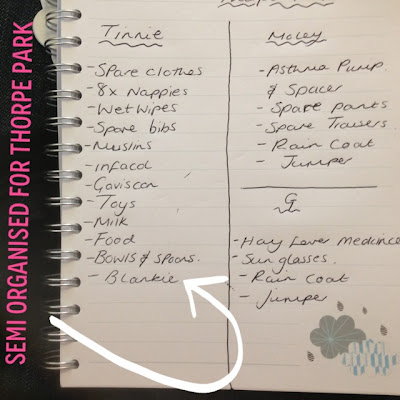 SEMI ORGANISED FOR THORPE PARK
Tinnie
-Spare clothes
-8x Nappies
-Wet Wipes
-Spare bibs
-Muslins
-infacol
-Gaviscon
-Toys
-Milk
-Food
-Bowls & spoons.
- Blankie
Moley
- Asthma Pump.
& Spacer
- Spare pants
- Spare Trousers
- Rain Coat
- Jumper
G
- Hay Fever Medicine
- Sunglasses.
- Rain Coat
- jumper